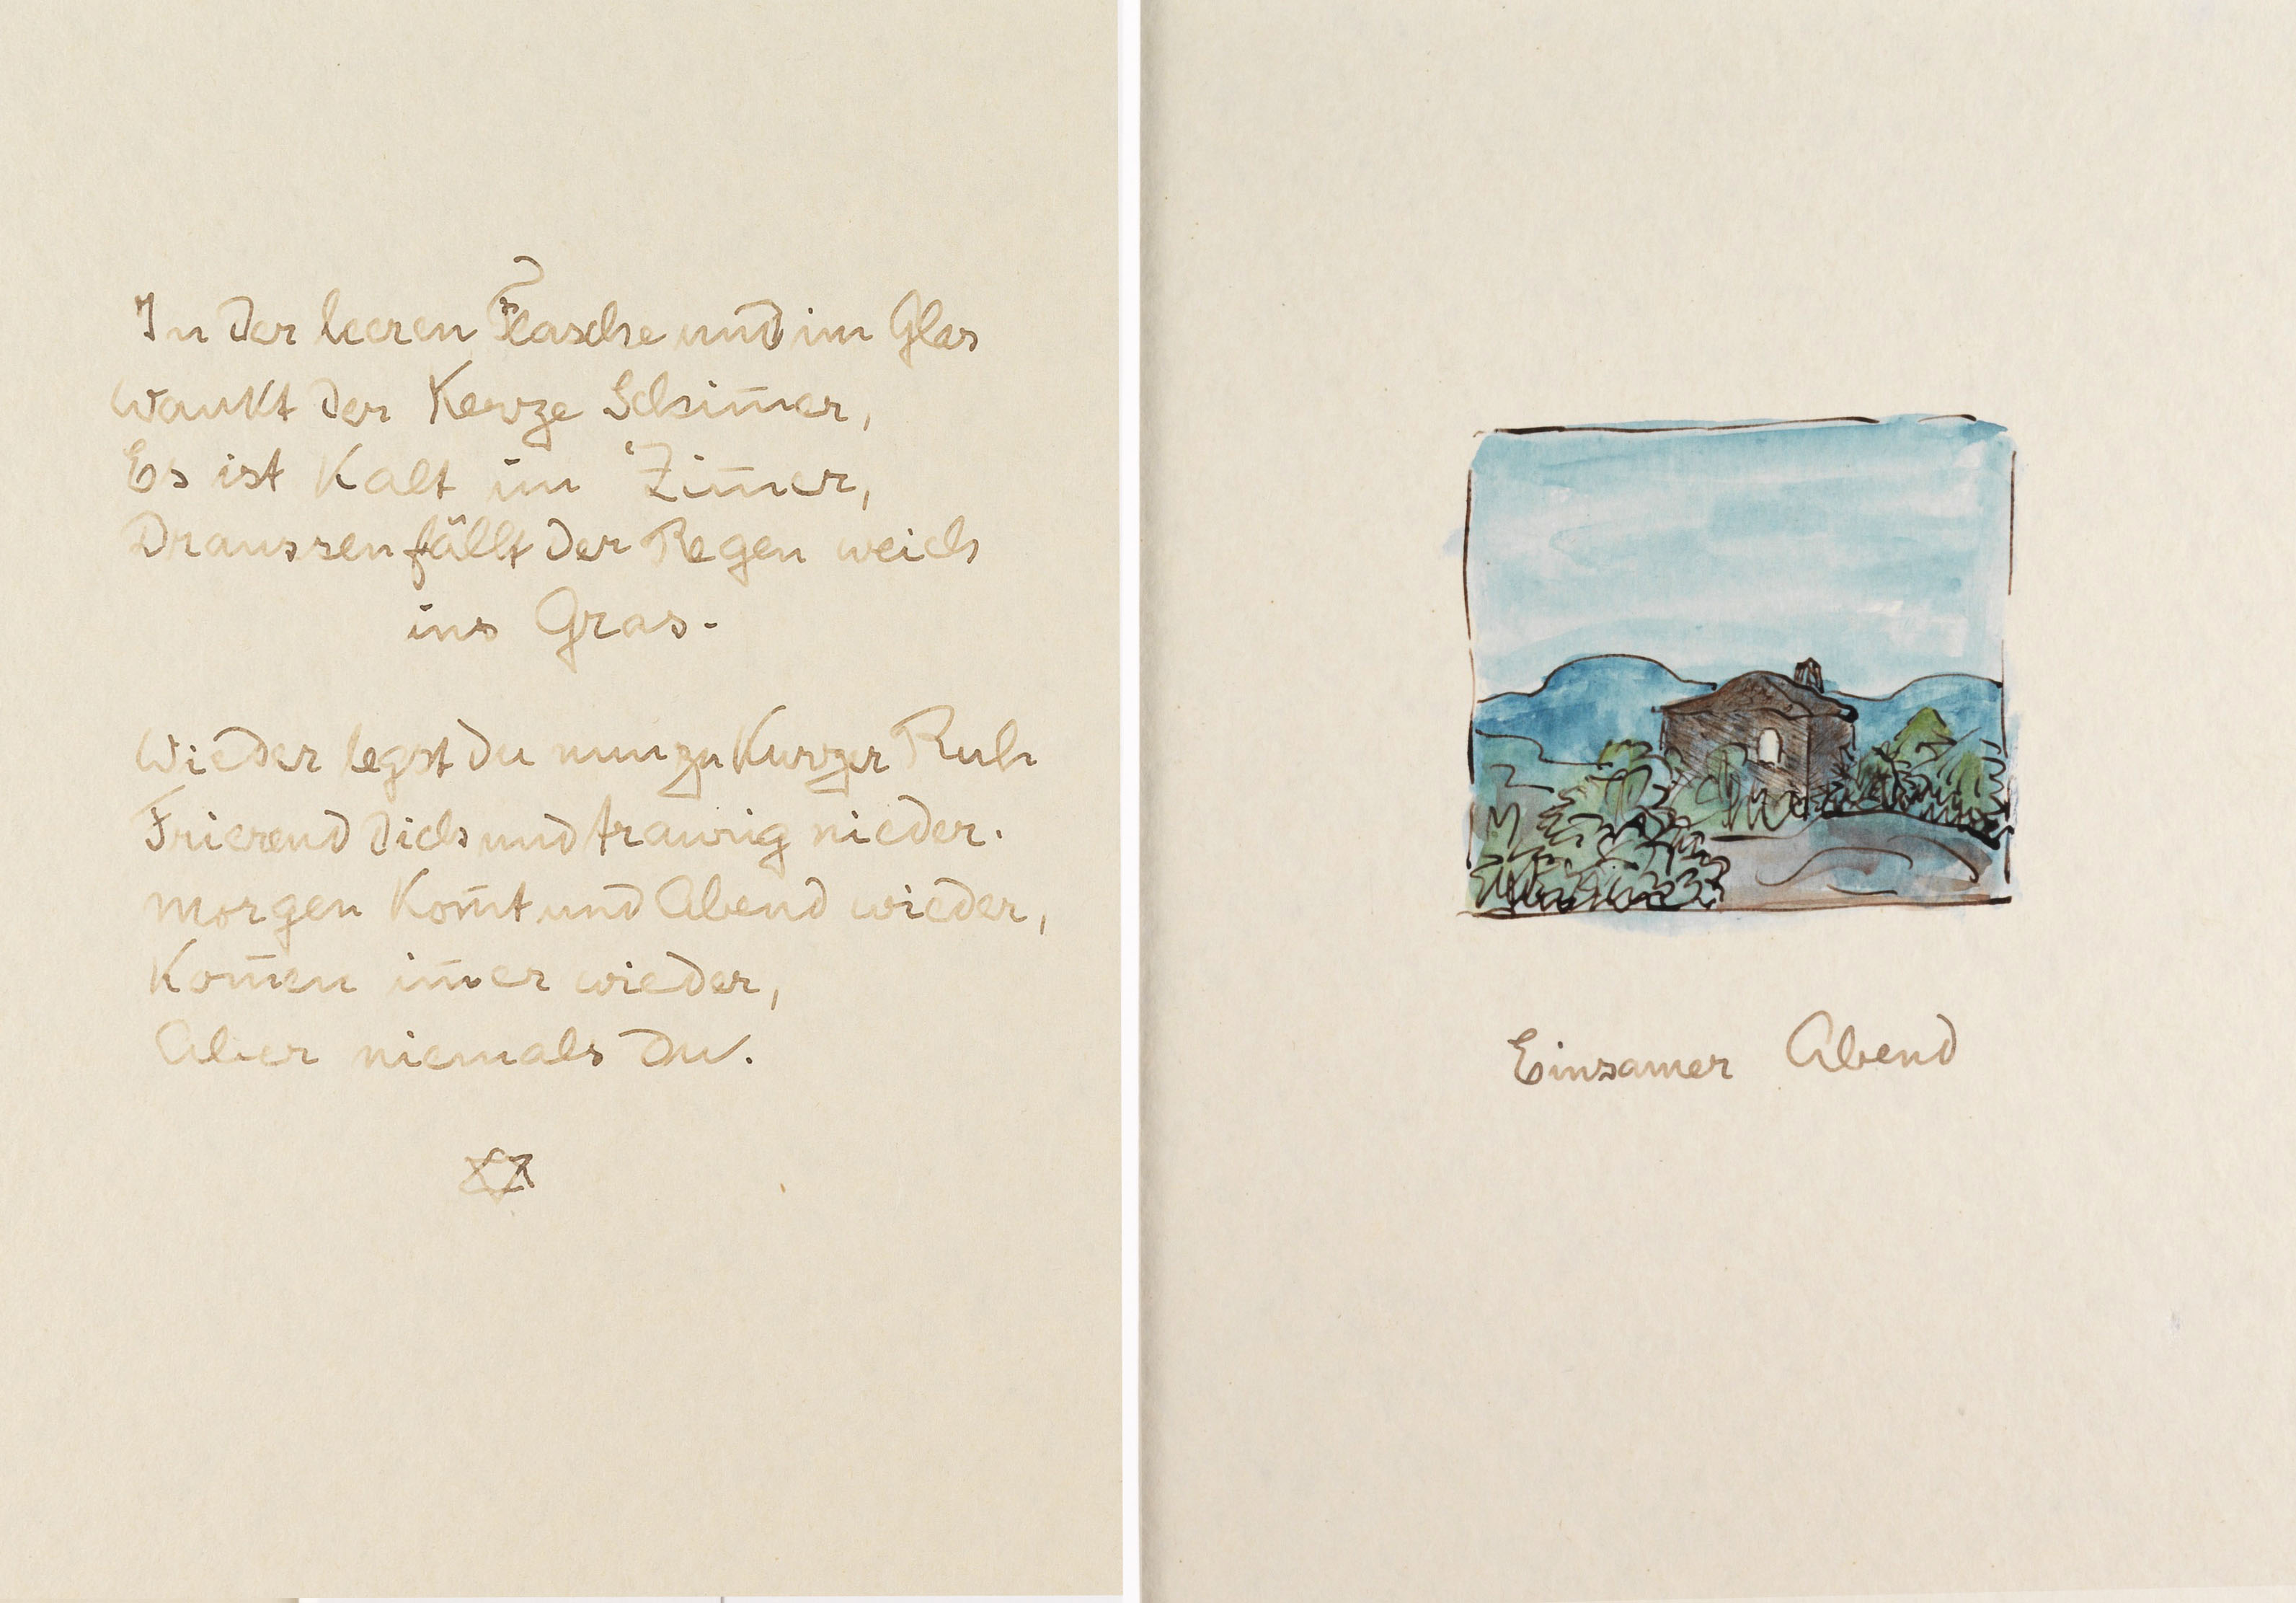 In der leeren Flasche und im Glas
Wankt der Kerze Schim̄er,
Es ist Kalt im Zim̄er,
Draussen fällt der Regen weich
ins Gras.
Wieder legst du nun zu Kurzer Ruh
Frierend dich und traurig nieder.
Morgen Kom̄t und Abend wieder,
Kom̄en im̄er wieder,
Aber niemals Du.
Einsamer Abend